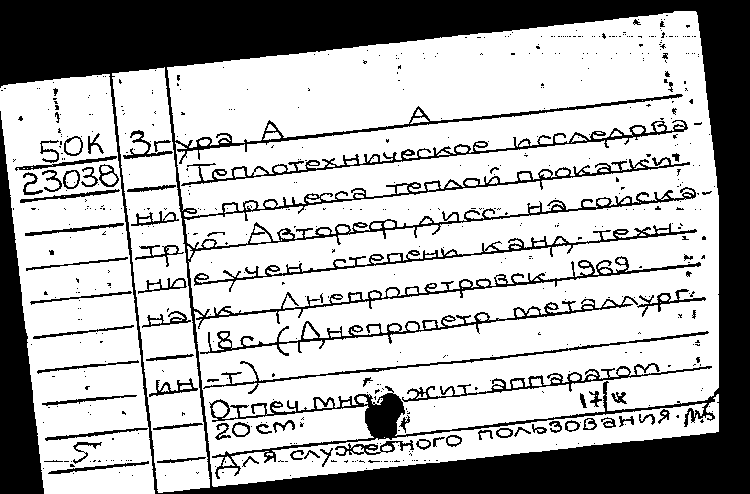 50К Згура, А А
23038 Теплотехническое исследова-
ние процесса теплой прокатки
труб. Автореф. дисс. на соиска-
ние учен. степени канд. техн.
наук. Днепропетровск, 1969.
18 с. (Днепропетр. металлург.
ин-т).
Отпеч. мно жит. аппаратом.
20 см. 17/IX
5 Для служебного пользования.